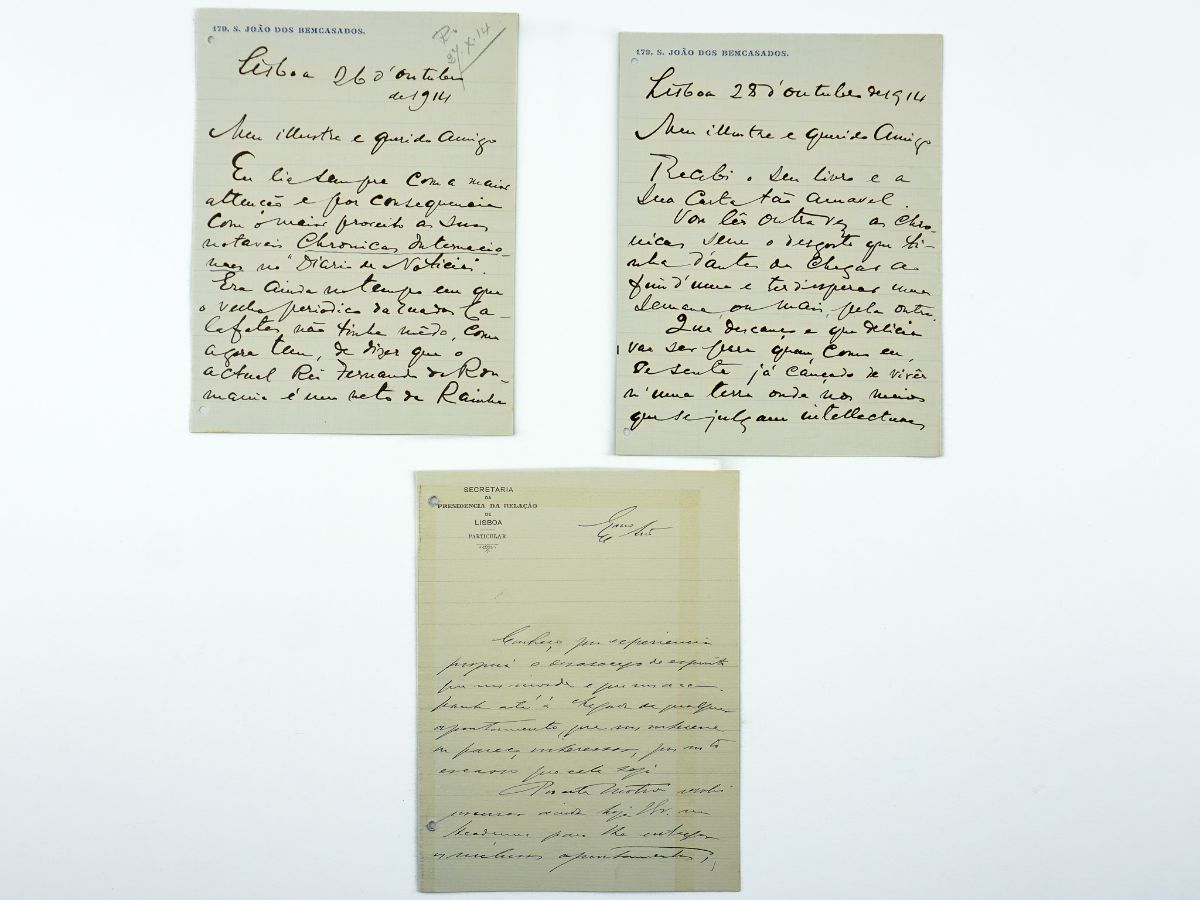 179, S. JOÃO DOS BEMCASADOS.
R.
27-X-14
Lisboa 26 d'Outubro
de 1914
Meu illustre e querido Amigo
Eu lia sempre com a maior
attenção e por consequencia
com o maior proveito as suas
notaveis Chronicas Internacio-
naes no "Diario de Noticias".
Era ainda no tempo em que
o velho periodico da rua dos Ca-
lafates não tinha mêdo, como
agora tem, de dizer que o
actual Rei Fernando da Rou-
mania é um neto da Rainha
179, S. JOÃO DOS BEMCASADOS.
Lisboa 28 d'Outubro de 1914
Meu illustre e querido Amigo
Recebi o seu livro e a
sua Carta tão amavel.
Vou lêr outra vez as Chro-
nicas sem o desgosto que ti-
nha d'antes de chegar ao
fim d'uma e ter d'esperar uma
semana, ou mais, pela outra.
Que descanço e que delicia
vae ser para quem, como eu,
se sente já cançado de vivêr
n'uma terra onde nos meios
que se julgam intellectuaes
SECRETARIA
DA
PRESIDENCIA DA RELAÇÃO
DE
LISBOA
PARTICULAR
Exmo
Snr
Conheço por experiencia
propria o desasocego de espirito
que nos
até á chegada de qualquer
apontamento, que nos
ou pareça interessar, por mto
escasso que elle seja
Por este motivo
procurar ainda hoje V. Ex. na
Academia para lhe entregar
os inclusos apontamentos;